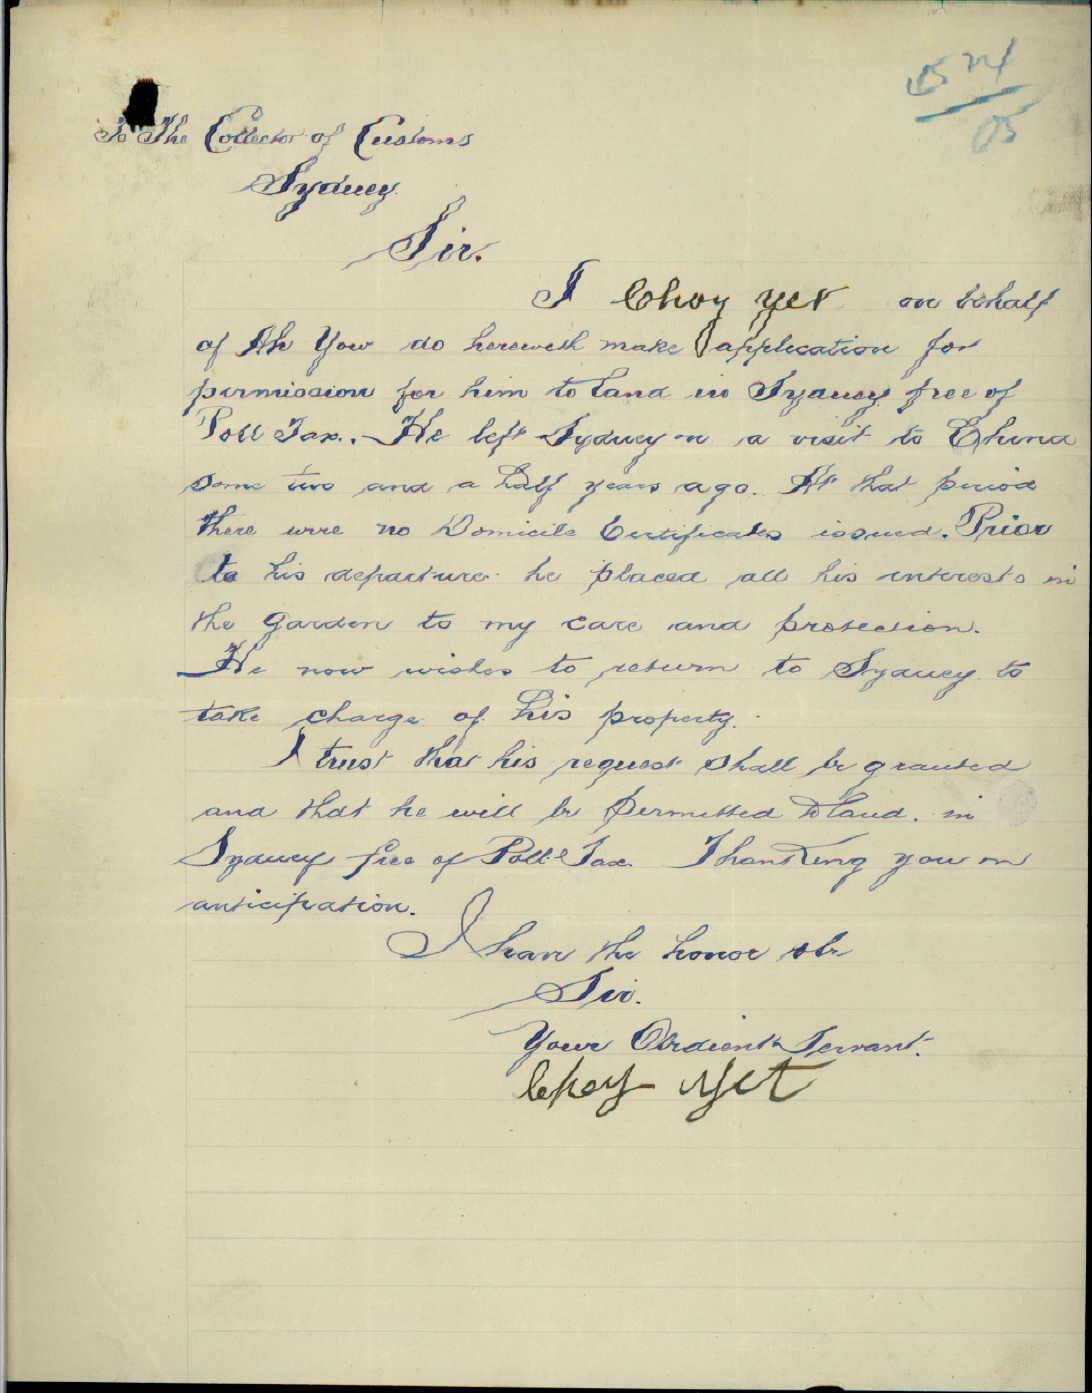 574
05
To The Collector of Customs
Sydney.
Sir.
I Choy Yet on behalf
of Ah Yow do herewith make application for
permission for him to land in Sydney free of
Poll Tax. He left Sydney on a visit to China
some two and a half years ago. At that period
there were no Domicile Certificates issued. Prior
to his departure he placed all his interests in
the garden to my care and protection.
He now wishes to return to Sydney to
take charge of his property.
I trust that his request shall be granted
and that he will be permitted to land in
Sydney free of Poll Tax. Thanking you in
anticipation.
I have the honor to be
Sir.
Your Obedient Servant.
Choy Yet